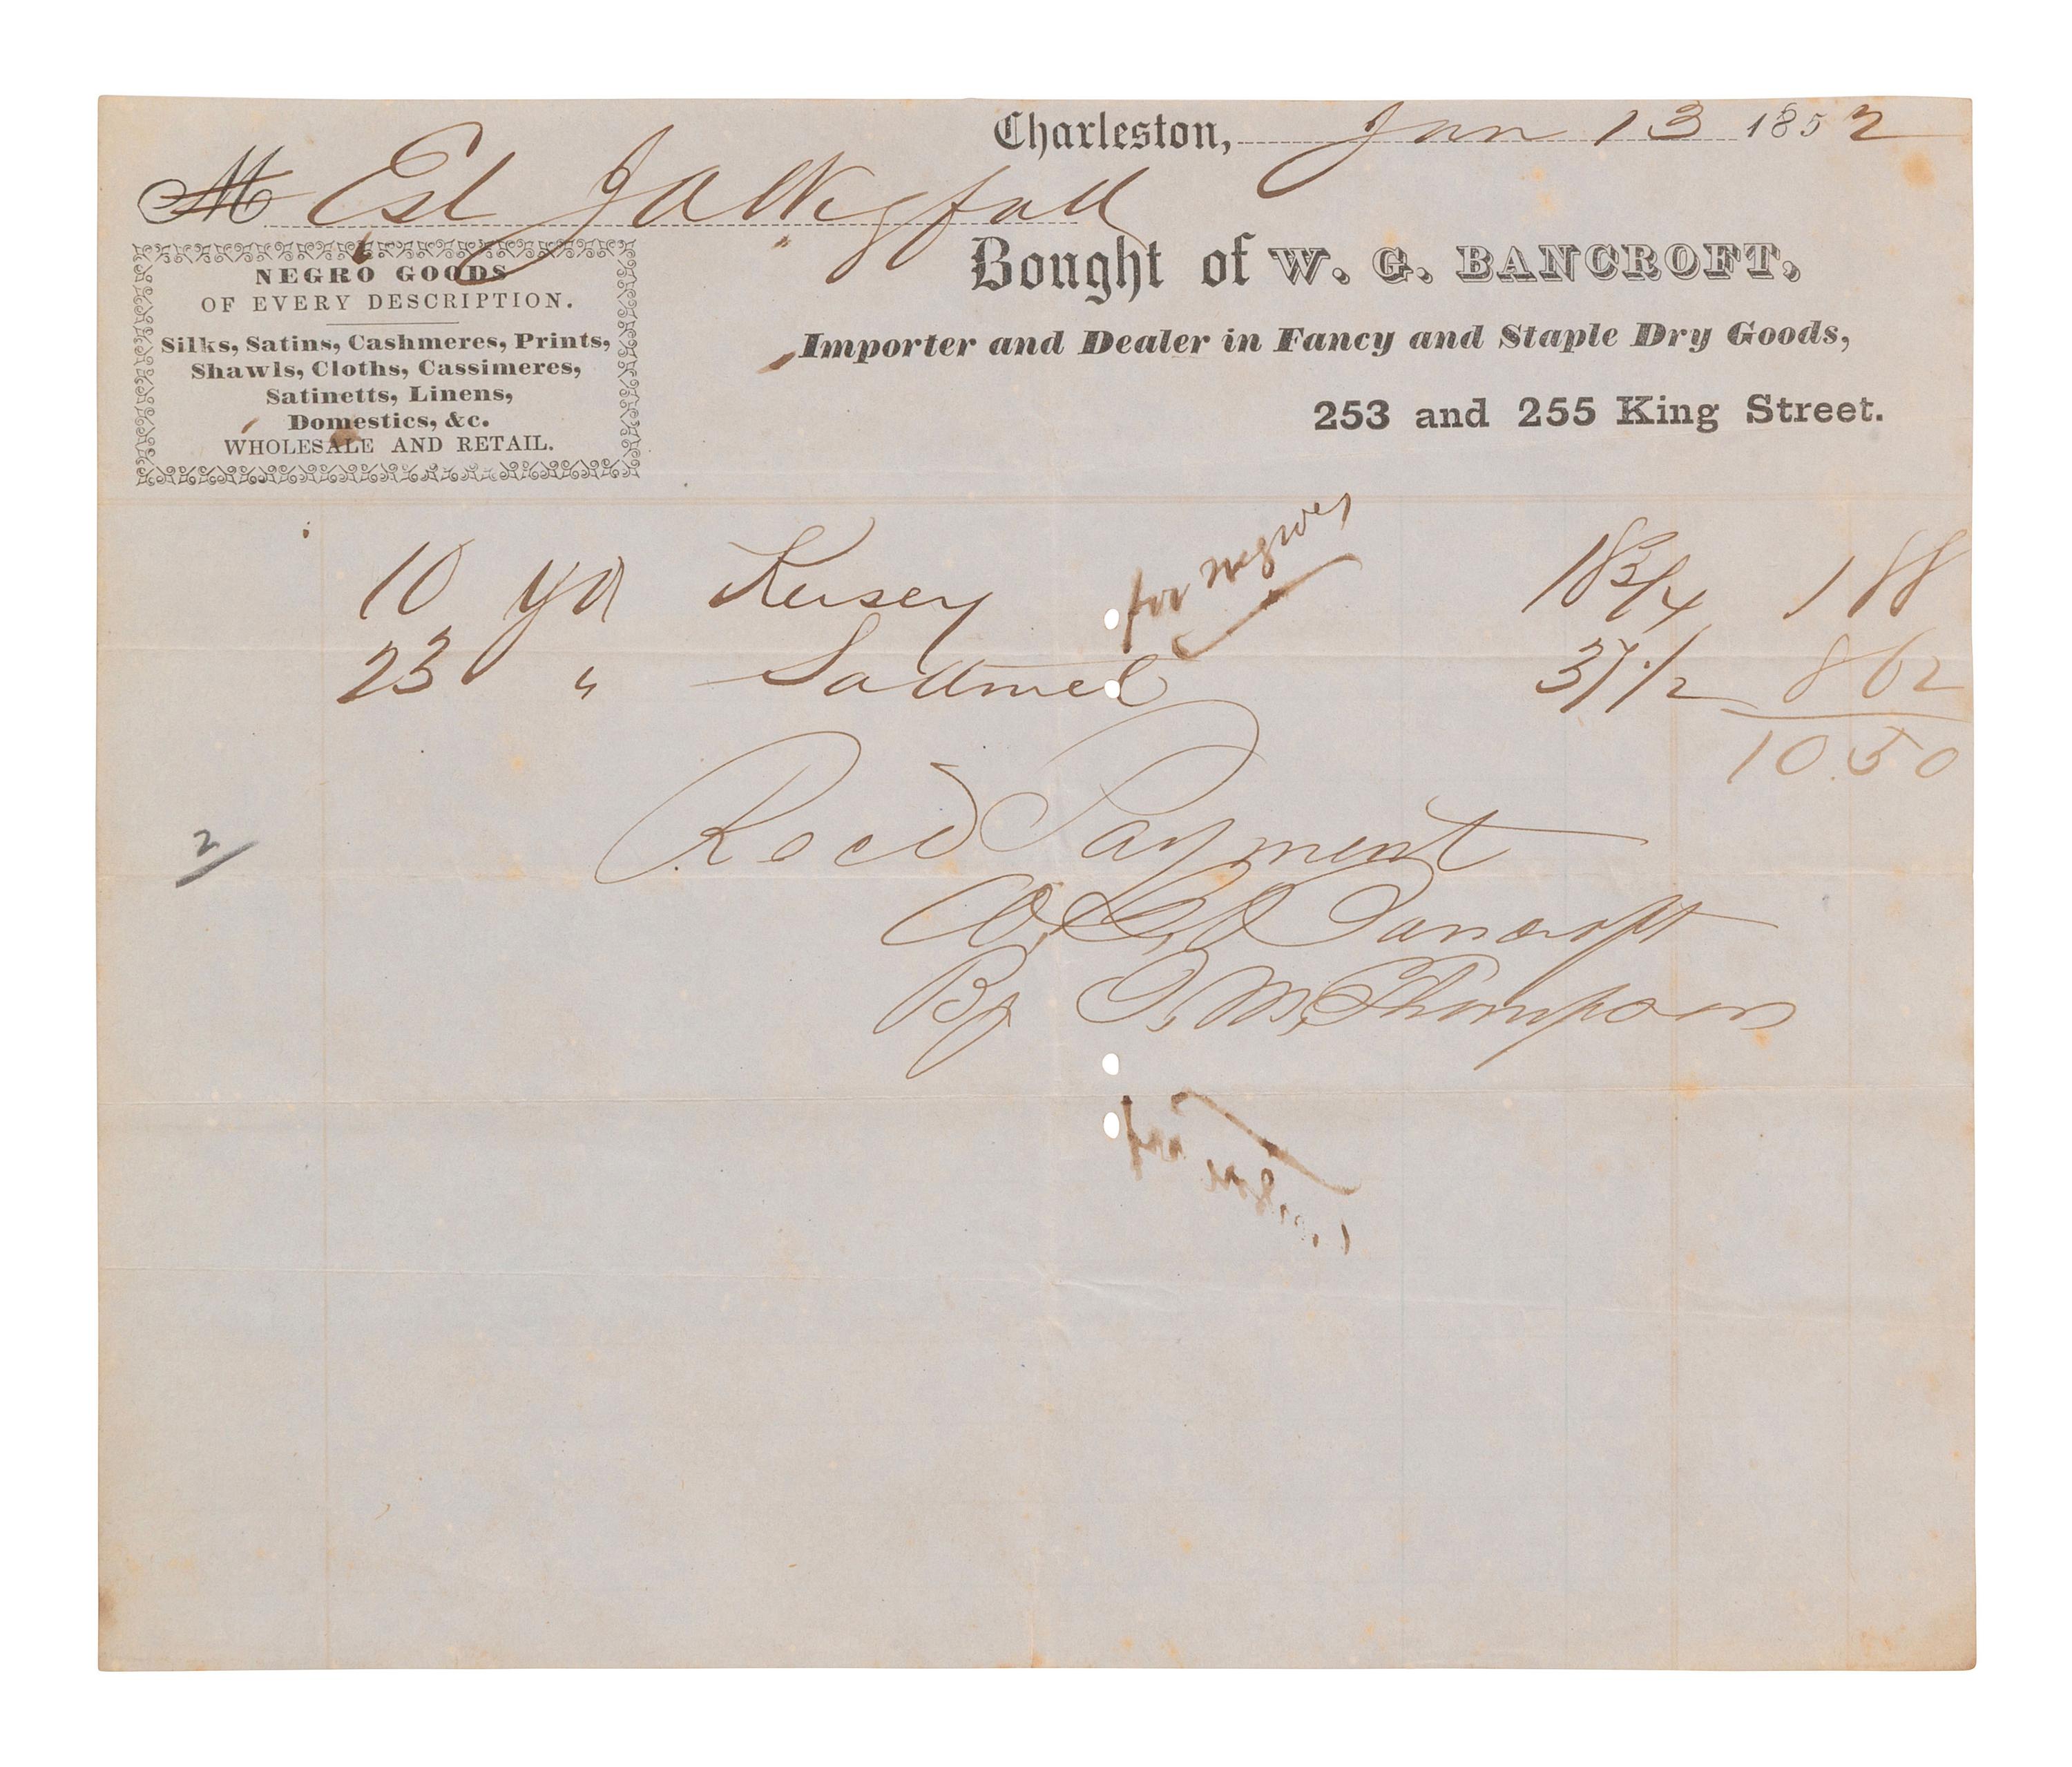 Charleston, Jan 13 1852
M Est J A
Bought of W. G. BANCROFT,
Importer and Dealer in Fancy and Staple Dry Goods,
253 and 255 King Street.
NEGRO GOODS
OF EVERY DESCRIPTION.
Silks, Satins, Cashmeres, Prints,
Shawls, Cloths, Cassimeres,
Satinetts, Linens,
Domestics, &c.
WHOLESALE AND RETAIL.
for negroes
10 yds Kersey 18 3/4 1 88
23 " Sattinet 37 1/2 8 62
10.50
2
Recd Payment
W. G. Bancroft
By T. M. Thompson